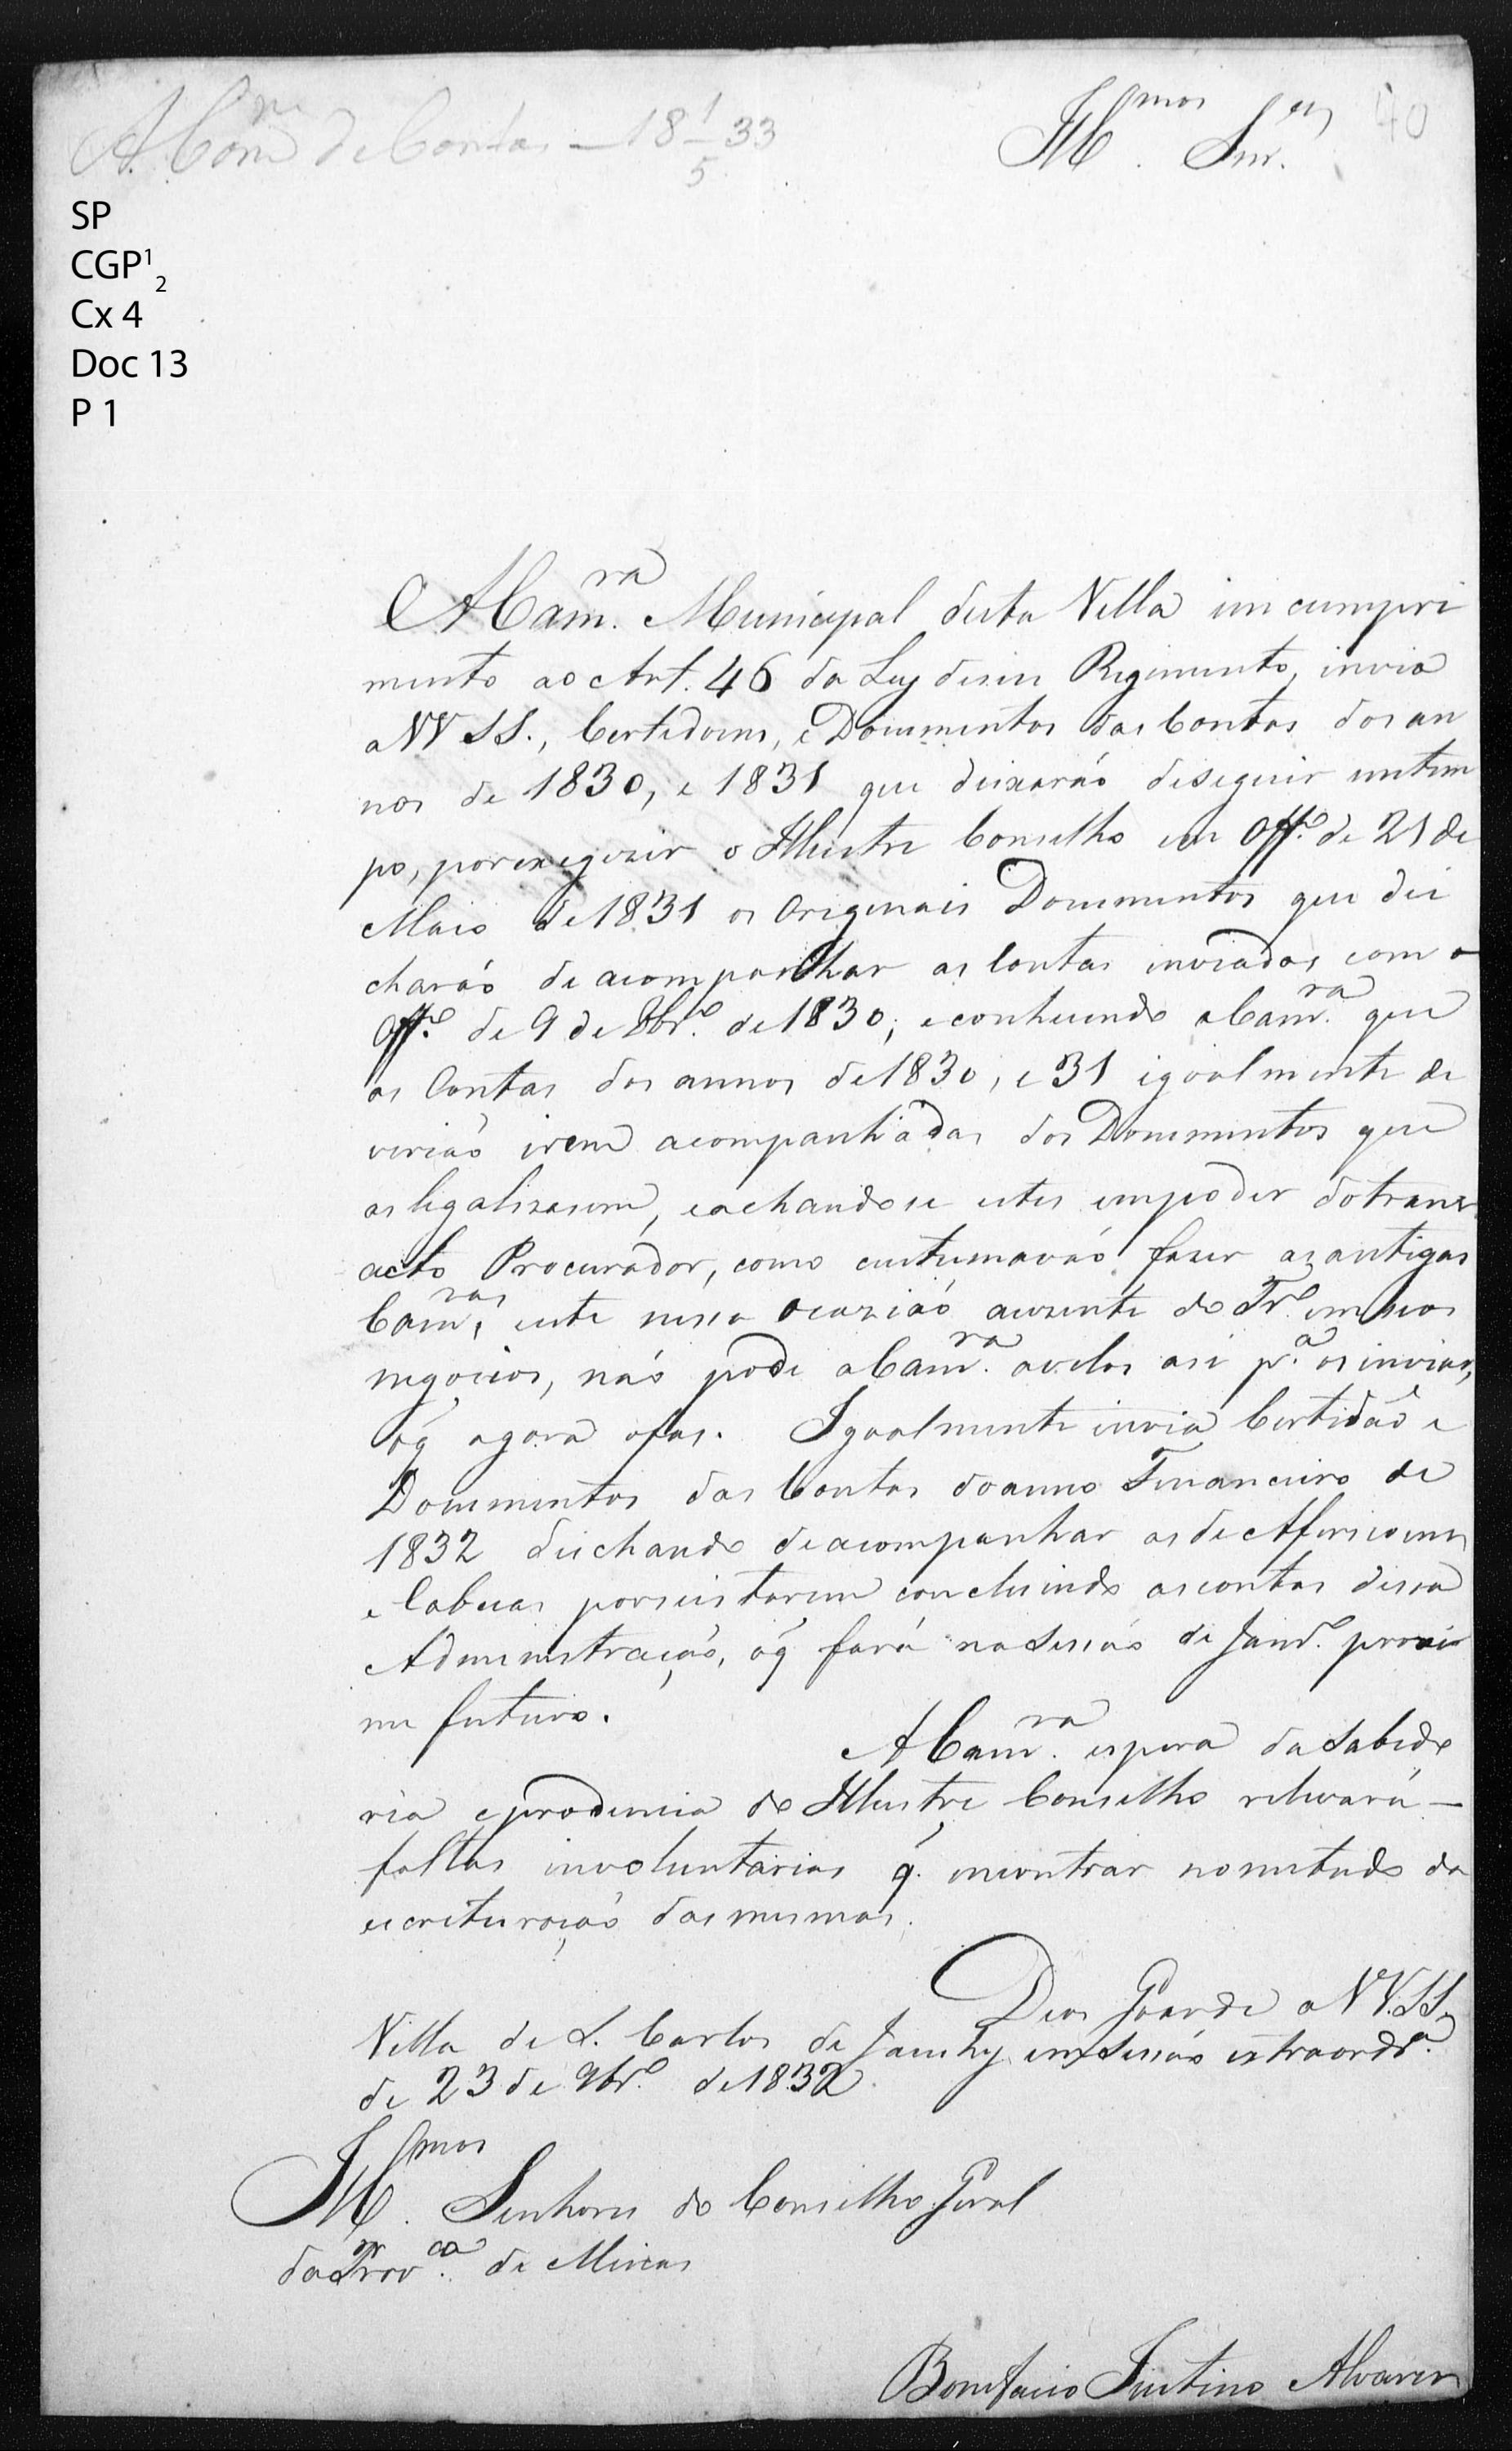 A Com.m de Contas — 18 1/5 33
Ill.mos Snr.es
40
SP
CGP1 2
Cx 4
Doc 13
P 1
A Cam.ra Municipal desta Villa im cumpri
mento ao Art. 46 da Ley deseu Regimento, invia
a VV SS., Certidoens, e Documentos das Contas dos an
nos de 1830, e 1831 que deixarás deseguir emtem
po, porexegezir o Illustre Conselho em Off.o de 21 de
Maio de 1831 os Originais Documentos que dei
charáo de acompanhar as Contas inviadas com o
Off.o de 9 de 8br.o de 1830; econhecendo aCam.ra que
as Contas dos annos de 1830, e 31 igoalmente de
veriáo irem acompanhadas dos Documentos que
as legalizasem, eachandose estes empoder dotrans
acto Procurador, como custumaváo fazer as antigas
Cam.ras, este nessa ocaziáo auzente do Tr.o em seos
negocios, náo pode aCam.ra avelos asi p.a os inviar,
oq̃ agora o fas. Igoalmente invia Certidáo e
Documentos das Contas doanno Financeiro de
1832 deichando deacompanhar as de Affericoens
e Cabeças porseistarem concluindo ascontas dessa
Administraçáo, oq̃ fará na Sessáo de Janr.o proxi
mo futuro.
A Cam.ra espera da Sabedo
ria eprodencia do Illustre Conselho relevará —
faltas involuntarias q̃. encontrar nometudo da
escrituraçáo das mesmas.
Deos Goarde a VV.SS.
Villa de S. Carlos de Jacuhy em Sessáo extraordr.a
de 23 de 9br.o de 1832.
Ill.mos Senhores do Conselho Geral
da Prov.ca de Minas
Bonifacio Justino Alvares